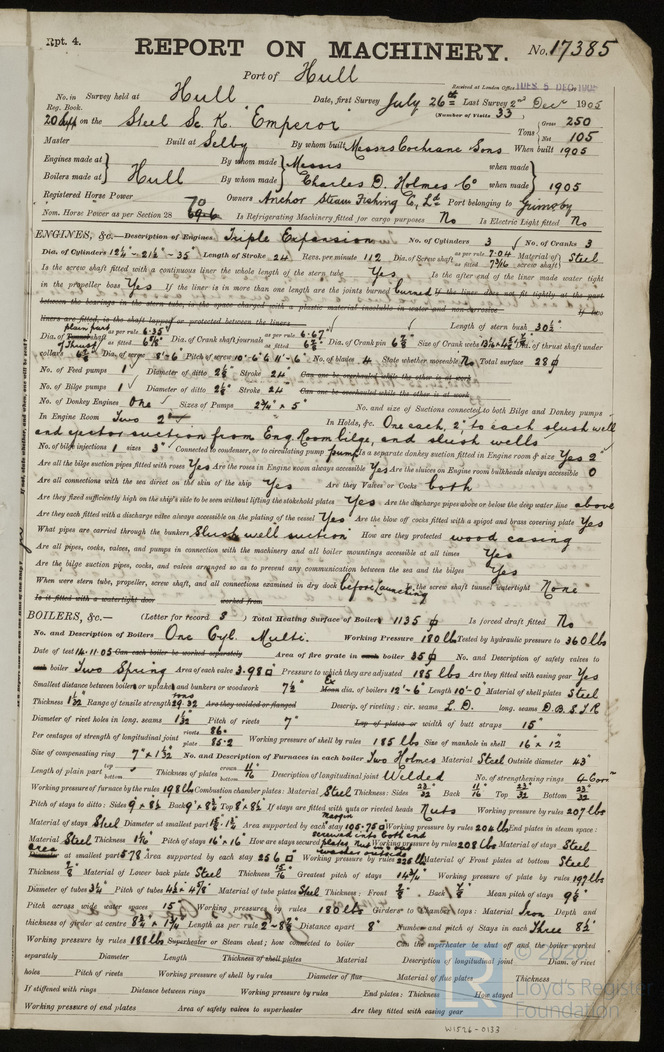 Rpt. 4.
REPORT ON MACHINERY. No. 17385
Port of Hull
Received at London Office TUES. 5 DEC 1905
No. in Survey held at Hull Date, first Survey July 26th Last Survey 2nd Dec 1905
Reg. Book. (Number of Visits 33)
20 Supp on the Steel Sc. K "Emperor" Tons Gross 250 Net 105
Master Built at Selby By whom built Messrs Cochrane & Sons When built 1905
Engines made at Hull By whom made Messrs when made
Boilers made at By whom made Charles D. Holmes & Co when made 1905
Registered Horse Power Owners Anchor Steam Fishing Co, Ltd Port belonging to Grimsby
Nom. Horse Power as per Section 28 70 Is Refrigerating Machinery fitted for cargo purposes No Is Electric Light fitted No
ENGINES, &c.—Description of Engines Triple Expansion No. of Cylinders 3 No. of Cranks 3
Dia. of Cylinders 12¼"-21½"-35" Length of Stroke 24 Revs. per minute 112 Dia. of Screw shaft as per rule 7.04 as fitted 7 3/16 Material of screw shaft Steel
Is the screw shaft fitted with a continuous liner the whole length of the stern tube Yes Is the after end of the liner made water tight
in the propeller boss Yes If the liner is in more than one length are the joints burned If the liner does not fit tightly at the part
between the bearings in the stern tube, is the space charged with a plastic material insoluble in water and non-corrosive If two
liners are fitted, is the shaft lapped or protected between the liners Length of stern bush 30½"
plain part
Dia. of Tunnel shaft as per rule 6.35 as fitted 6⅝" Dia. of Crank shaft journals as per rule 6.67 as fitted 6¾" Dia. of Crank pin 6¾" Size of Crank webs Dia. of thrust shaft under
of Thrust
collars 6¾" Dia. of screw 8'-6 Pitch of screw 10'-6" & 11'-6" No. of blades 4 State whether moveable No Total surface 28 ▯
No. of Feed pumps 1 Diameter of ditto 2½" Stroke 24 Can one be overhauled while the other is at work
No. of Bilge pumps 1 Diameter of ditto 2½" Stroke 24 Can one be overhauled while the other is at work
No. of Donkey Engines One Sizes of Pumps 2¾" x 5" No. and size of Suctions connected to both Bilge and Donkey pumps
In Engine Room Two 2" In Holds, &c. One each, 2" to each slush well
and ejector suction from Eng. Room bilge, and slush wells
No. of bilge injections 1 sizes 3" Connected to condenser, or to circulating pump pump Is a separate donkey suction fitted in Engine room & size Yes 2"
Are all the bilge suction pipes fitted with roses Yes Are the roses in Engine room always accessible Yes Are the sluices on Engine room bulkheads always accessible 0
Are all connections with the sea direct on the skin of the ship Yes Are they Valves or Cocks both
Are they fixed sufficiently high on the ship's side to be seen without lifting the stokehold plates Yes Are the discharge pipes above or below the deep water line above
Are they each fitted with a discharge valve always accessible on the plating of the vessel Yes Are the blow off cocks fitted with a spigot and brass covering plate Yes
What pipes are carried through the bunkers Slush well suction How are they protected wood casing
Are all pipes, cocks, valves, and pumps in connection with the machinery and all boiler mountings accessible at all times Yes
Are the bilge suction pipes, cocks, and valves arranged so as to prevent any communication between the sea and the bilges Yes
When were stern tube, propeller, screw shaft, and all connections examined in dry dock before launching Is the screw shaft tunnel watertight None
Is it fitted with a watertight door worked from
BOILERS, &c.— (Letter for record S) Total Heating Surface of Boilers 1135 ▯ Is forced draft fitted No
No. and Description of Boilers One Cyl. Multi. Working Pressure 180 lbs Tested by hydraulic pressure to 360 lbs
Date of test 14.11.05 Can each boiler be worked separately Area of fire grate in each boiler 35 ▯ No. and Description of safety valves to
each boiler Two Spring Area of each valve 3.98 ▯" Pressure to which they are adjusted 185 lbs Are they fitted with easing gear Yes
Smallest distance between boilers or uptakes and bunkers or woodwork 7½" Ex Mean dia. of boilers 12'-6" Length 10'-0 Material of shell plates Steel
Thickness 1 1/32 Range of tensile strength 29.32 tons Are they welded or flanged Descrip. of riveting: cir. seams L.D. long. seams D.B.S.T.R
Diameter of rivet holes in long. seams 1 1/32 Pitch of rivets 7" Lap of plates or width of butt straps 15"
Per centages of strength of longitudinal joint rivets 86. plate 85.2 Working pressure of shell by rules 185 lbs Size of manhole in shell 16" x 12
Size of compensating ring 7" x 1 1/32 No. and Description of Furnaces in each boiler Two Holmes Material Steel Outside diameter 43"
Length of plain part top bottom Thickness of plates crown bottom 11/16 Description of longitudinal joint Welded No. of strengthening rings 4 Corrns
Working pressure of furnace by the rules 198 lbs Combustion chamber plates: Material Steel Thickness: Sides 23/32 Back 11/16 Top 23/32 Bottom 23/32
Pitch of stays to ditto: Sides 9" x 8½ Back 9" x 8¼ Top 8" x 8½ If stays are fitted with nuts or riveted heads Nuts Working pressure by rules 207 lbs
Material of stays Steel Diameter at smallest part Area supported by each stay 105.75 ▯ Working pressure by rules 204 lbs End plates in steam space:
Material Steel Thickness Pitch of stays 16" x 16 How are stays secured Working pressure by rules 208 lbs Material of stays Steel
Area at smallest part 5.78 Area supported by each stay 256 ▯" Working pressure by rules 225 lbs Material of Front plates at bottom Steel
Thickness Material of Lower back plate Steel Thickness 15/16 Greatest pitch of stays 14¾" Working pressure of plate by rules 197 lbs
Diameter of tubes 3¼" Pitch of tubes 4½ x 4⅝" Material of tube plates Steel Thickness: Front Back Mean pitch of stays 9½"
Pitch across wide water spaces 15" Working pressures by rules 180 lbs Girders to Chamber tops: Material Iron Depth and
thickness of girder at centre 8½ x 1¾ Length as per rule 2-8½ Distance apart 8" Number and pitch of Stays in each Three 8½
Working pressure by rules 188 lbs Superheater or Steam chest; how connected to boiler Can the superheater be shut off and the boiler worked
separately Diameter Length Thickness of shell plates Material Description of longitudinal joint Diam. of rivet
holes Pitch of rivets Working pressure of shell by rules Diameter of flue Material of flue plates Thickness
If stiffened with rings Distance between rings Working pressure by rules End plates: Thickness How stayed
Working pressure of end plates Area of safety valves to superheater Are they fitted with easing gear
© 2020
Lloyd's Register
Foundation
W1526-0133